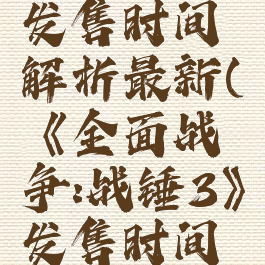 发售时间
解析最新(
《全面战
争:战锤3》
发售时间